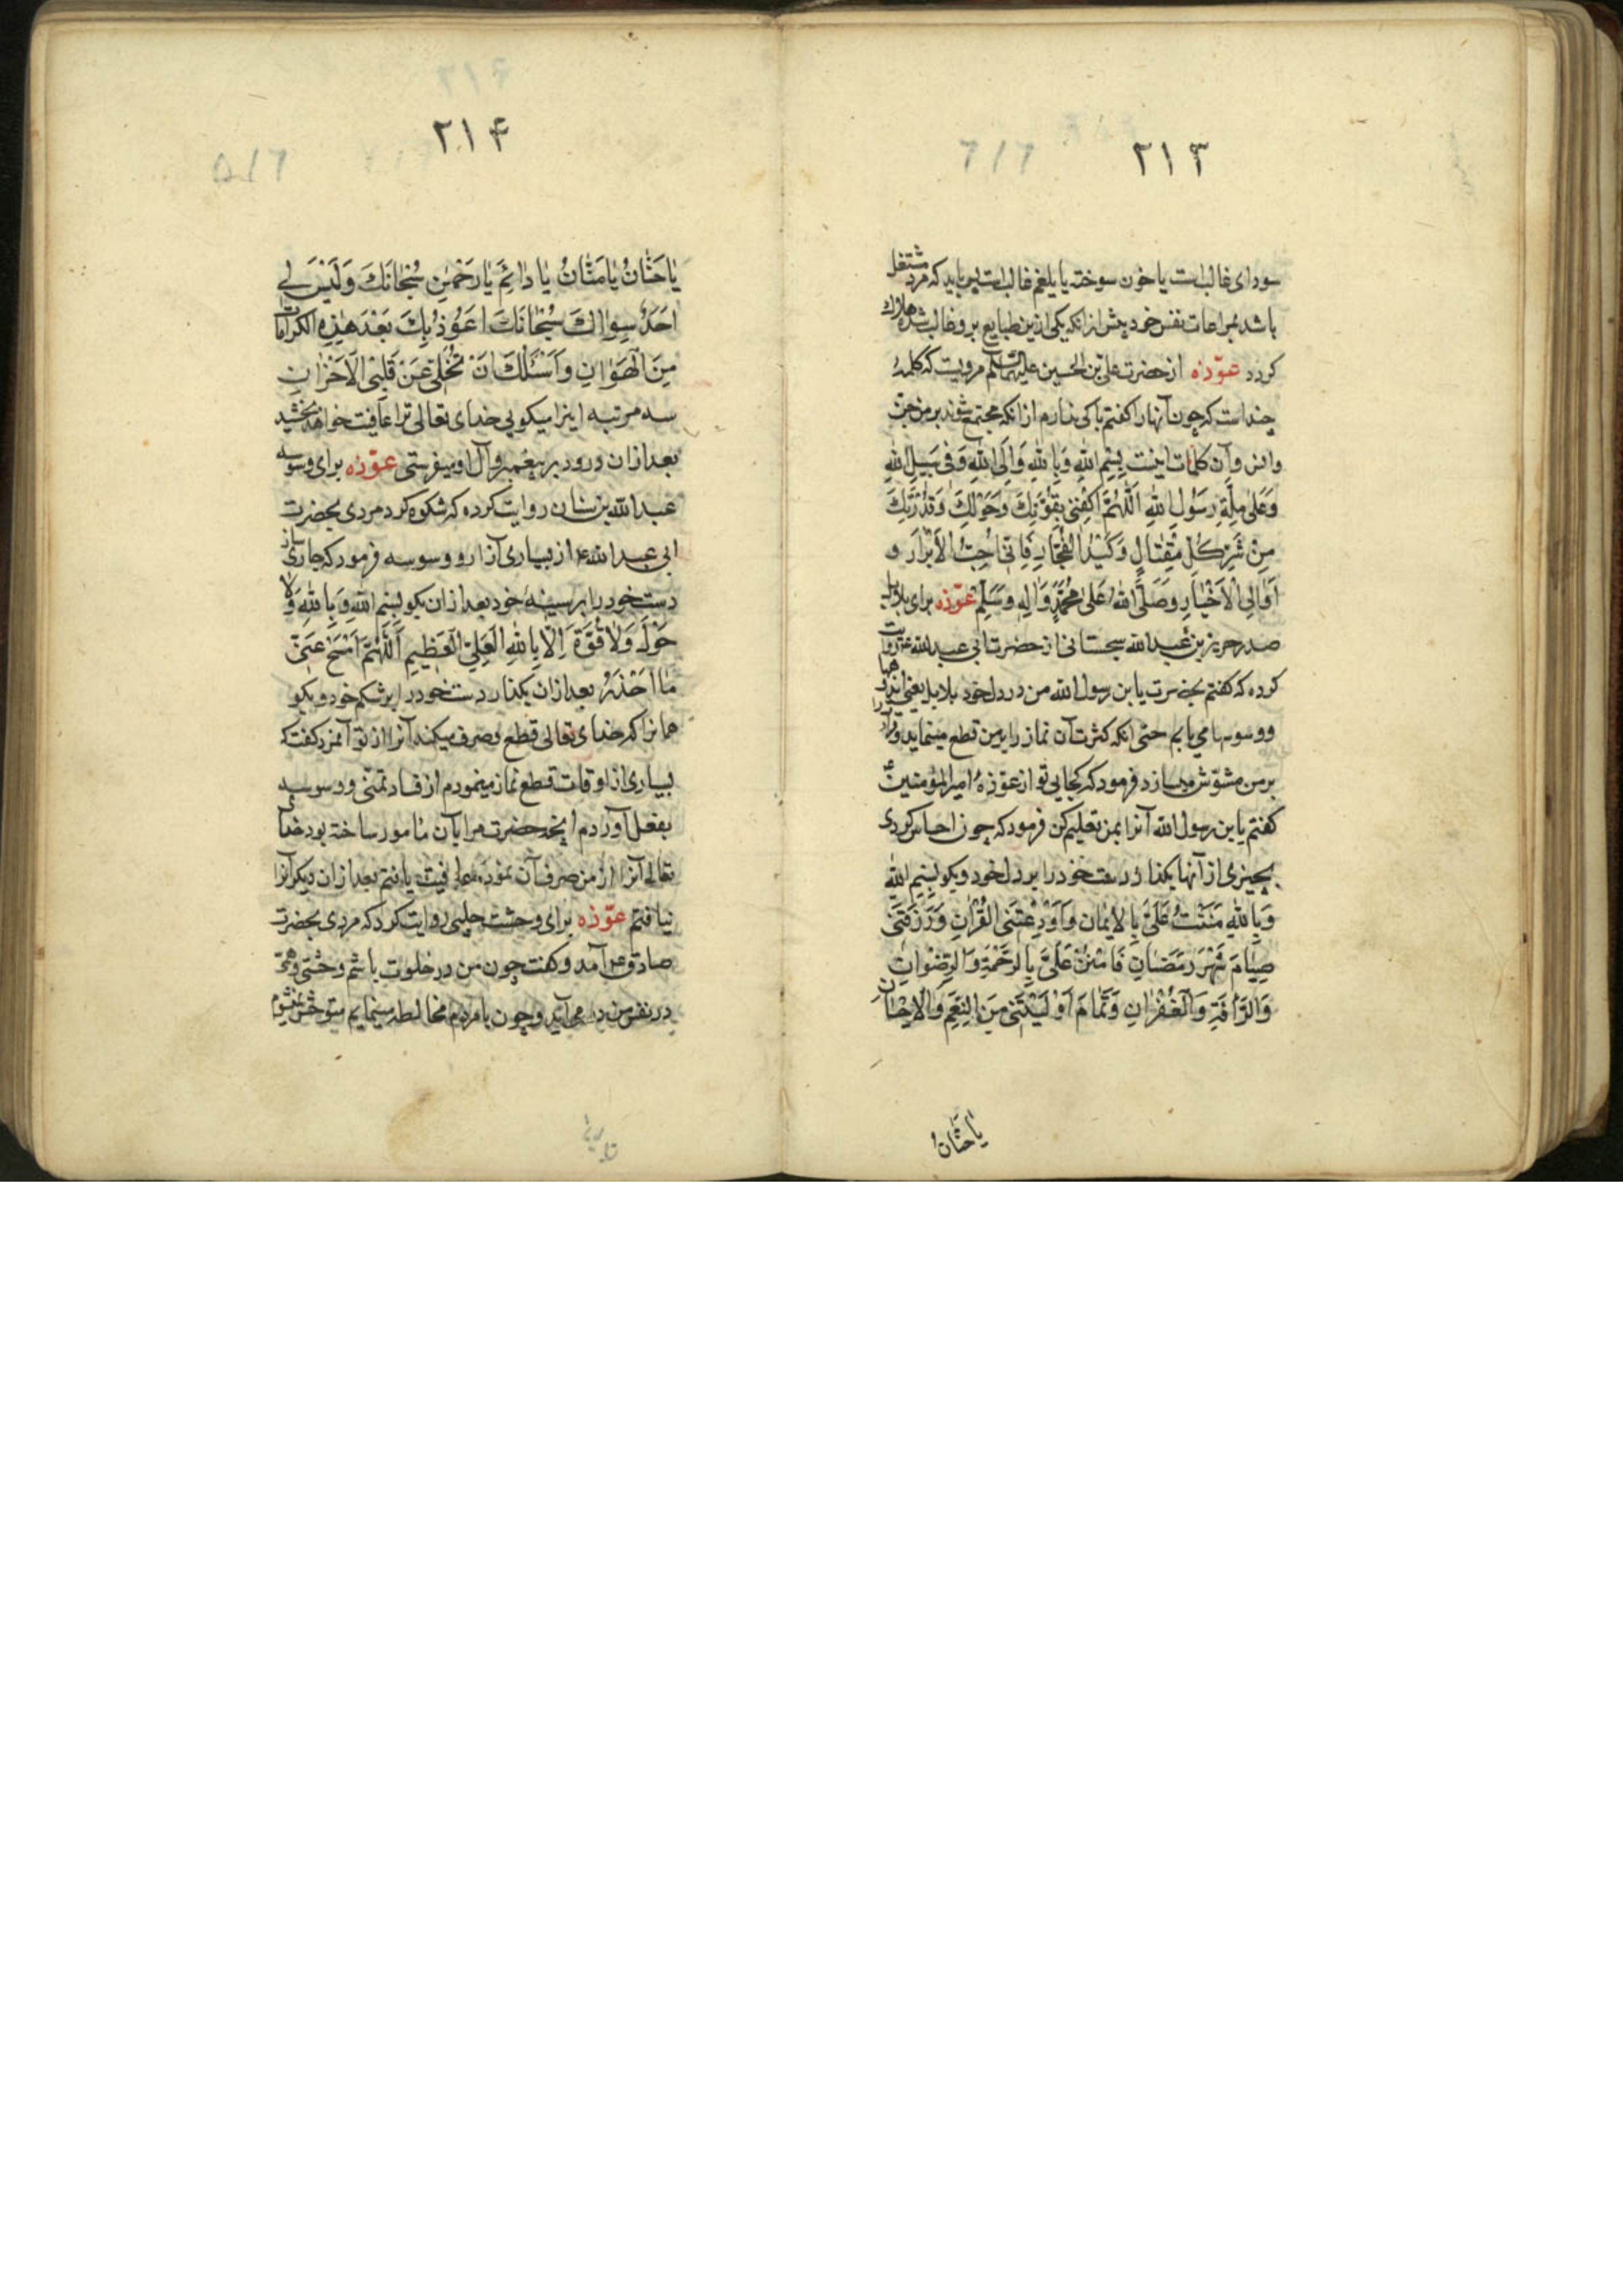 ۲۱۳
سودای غالبست یا خون سوخته یا بلغم غالبست پس باید که مرد مشتغل
باشد بمراعات نفس خود پیش از انکه یکی ازین طبایع برو غالب شده هلاک
کردد عوّذه از حضرت علی بن الحسین علیهما السّلم مرویست که کلمهٔ
چند است که چون آنها را کفتم باکی ندارم از انکه مجتمع شوند بر من جن
وانس وآن کلمات اینست بِسْمِ اللهِ وَبِاللهِ وَاِلَی اللهِ وَفی سَبیلِ اللهِ
وَعَلیٰ مِلَّةِ رَسُولِ اللهِ اَللّٰهُمَّ اکْفِنی بِقُوَّتِكَ وَحَوْلِكَ وَقُدْرَتِكَ
مِنْ شَرِّ کُلِّ مُغْتٰالٍ وَکَیْدِ الفُجّٰارِ فَاِنّی اُحِبُّ الاَبْرٰارَ و
اُوٰالِی الْاَخْیٰارَ وَصَلَّی اللهُ عَلیٰ مُحَمَّدٍ وَاٰلِهِ وَسَلِّمْ عوّذه برای بلابل
صدر حریز بن عبدالله سجستانی از حضرت ابی عبدالله ع روایت
کرده که کفتم بحضرت یا بن رسول الله من در دل خود بلابل یعنی اندوهها
ووسوسها می یابم حتی انکه کثرت آن نماز را بر من قطع مینماید وقرآن را
بر من مشوّش میسازد فرمود که کجایی تو از عوّذهٔ امیر المؤمنین ع
کفتم یا بن رسول الله آنرا بمن تعلیم کن فرمود که چون احساس کردی
بچیزی از آنها بکذار دست خود را بر دل خود وبکو بِسْمِ اللهِ
وَبِاللهِ مَنَنْتَ عَلَیَّ بِالاِیْمٰانِ وَاَوْدَعْتَنِی القُرْاٰنَ وَرَزَقْتَنی
صِیٰامَ شَهْرِ رَمَضٰانَ فَامْنُنْ عَلَیَّ بِالرَّحْمَةِ وَالرِّضْوٰانِ
وَالرَّأْفَةِ وَالْغُفْرٰانِ وَتَمٰامَ اَوْلَیْتَنی مِنَ النِّعَمِ وَالْاِحْسٰانِ
یٰا حَنّٰانُ
۲۱۴
یٰا حَنّٰانُ یٰا مَنّٰانُ یٰا دٰائِمُ یٰا رَحْمٰنُ سُبْحٰانَكَ وَلَیْسَ لی
اَحَدٌ سِوٰاكَ سُبْحٰانَكَ اَعُوذُ بِكَ بَعْدَ هٰذِهِ الْکَرٰامٰاتِ
مِنَ الْهَوٰانِ وَاَسْئَلُكَ اَنْ تُجْلِیَ عَنْ قَلْبِی الْاَحْزٰانَ
سه مرتبه اینرا میکویی خدای تعالی ترا عافیت خواهد بخشید
بعد ازان درود بر پیغمبر وآل او میفرستی عوّذه برای وسوسه
عبدالله بن سنان روایت کرده که شکوه کرد مردی بحضرت
ابی عبدالله ع از بسیاری آزار و وسوسه فرمود که جاری ساز
دست خود را بر سینهٔ خود بعد ازان بکو بِسْمِ اللهِ وَبِاللهِ وَلٰا
حَوْلَ وَلٰا قُوَّةَ اِلّٰا بِاللهِ الْعَلِیِّ الْعَظیمِ اَللّٰهُمَّ امْسَحْ عَنّی
مٰا اَحْذَرُ بعد ازان بکذار دست خود را بر شکم خود وبکو
همانرا که خدای تعالی قطع وصرف میکند آنرا از تو آنمرد کفت که
بسیاری از اوقات قطع نماز مینمودم از فساد تمنّی و وسوسه
بفعل آوردم انچه حضرت مرا بآن مأمور ساخته بود خدای
تعالی آنرا از من صرف آن نموده عافیت یافتم بعد ازان دیکر آنرا
نیافتم عوّذه برای وحشت حلبی روایت کرد که مردی بحضرت
صادق ع آمد وکفت چون من در خلوت باشم وحشتی وهمّی
در نفس من در می آید وچون با مردم مخالطه مینمایم متوحّش نمیشوم